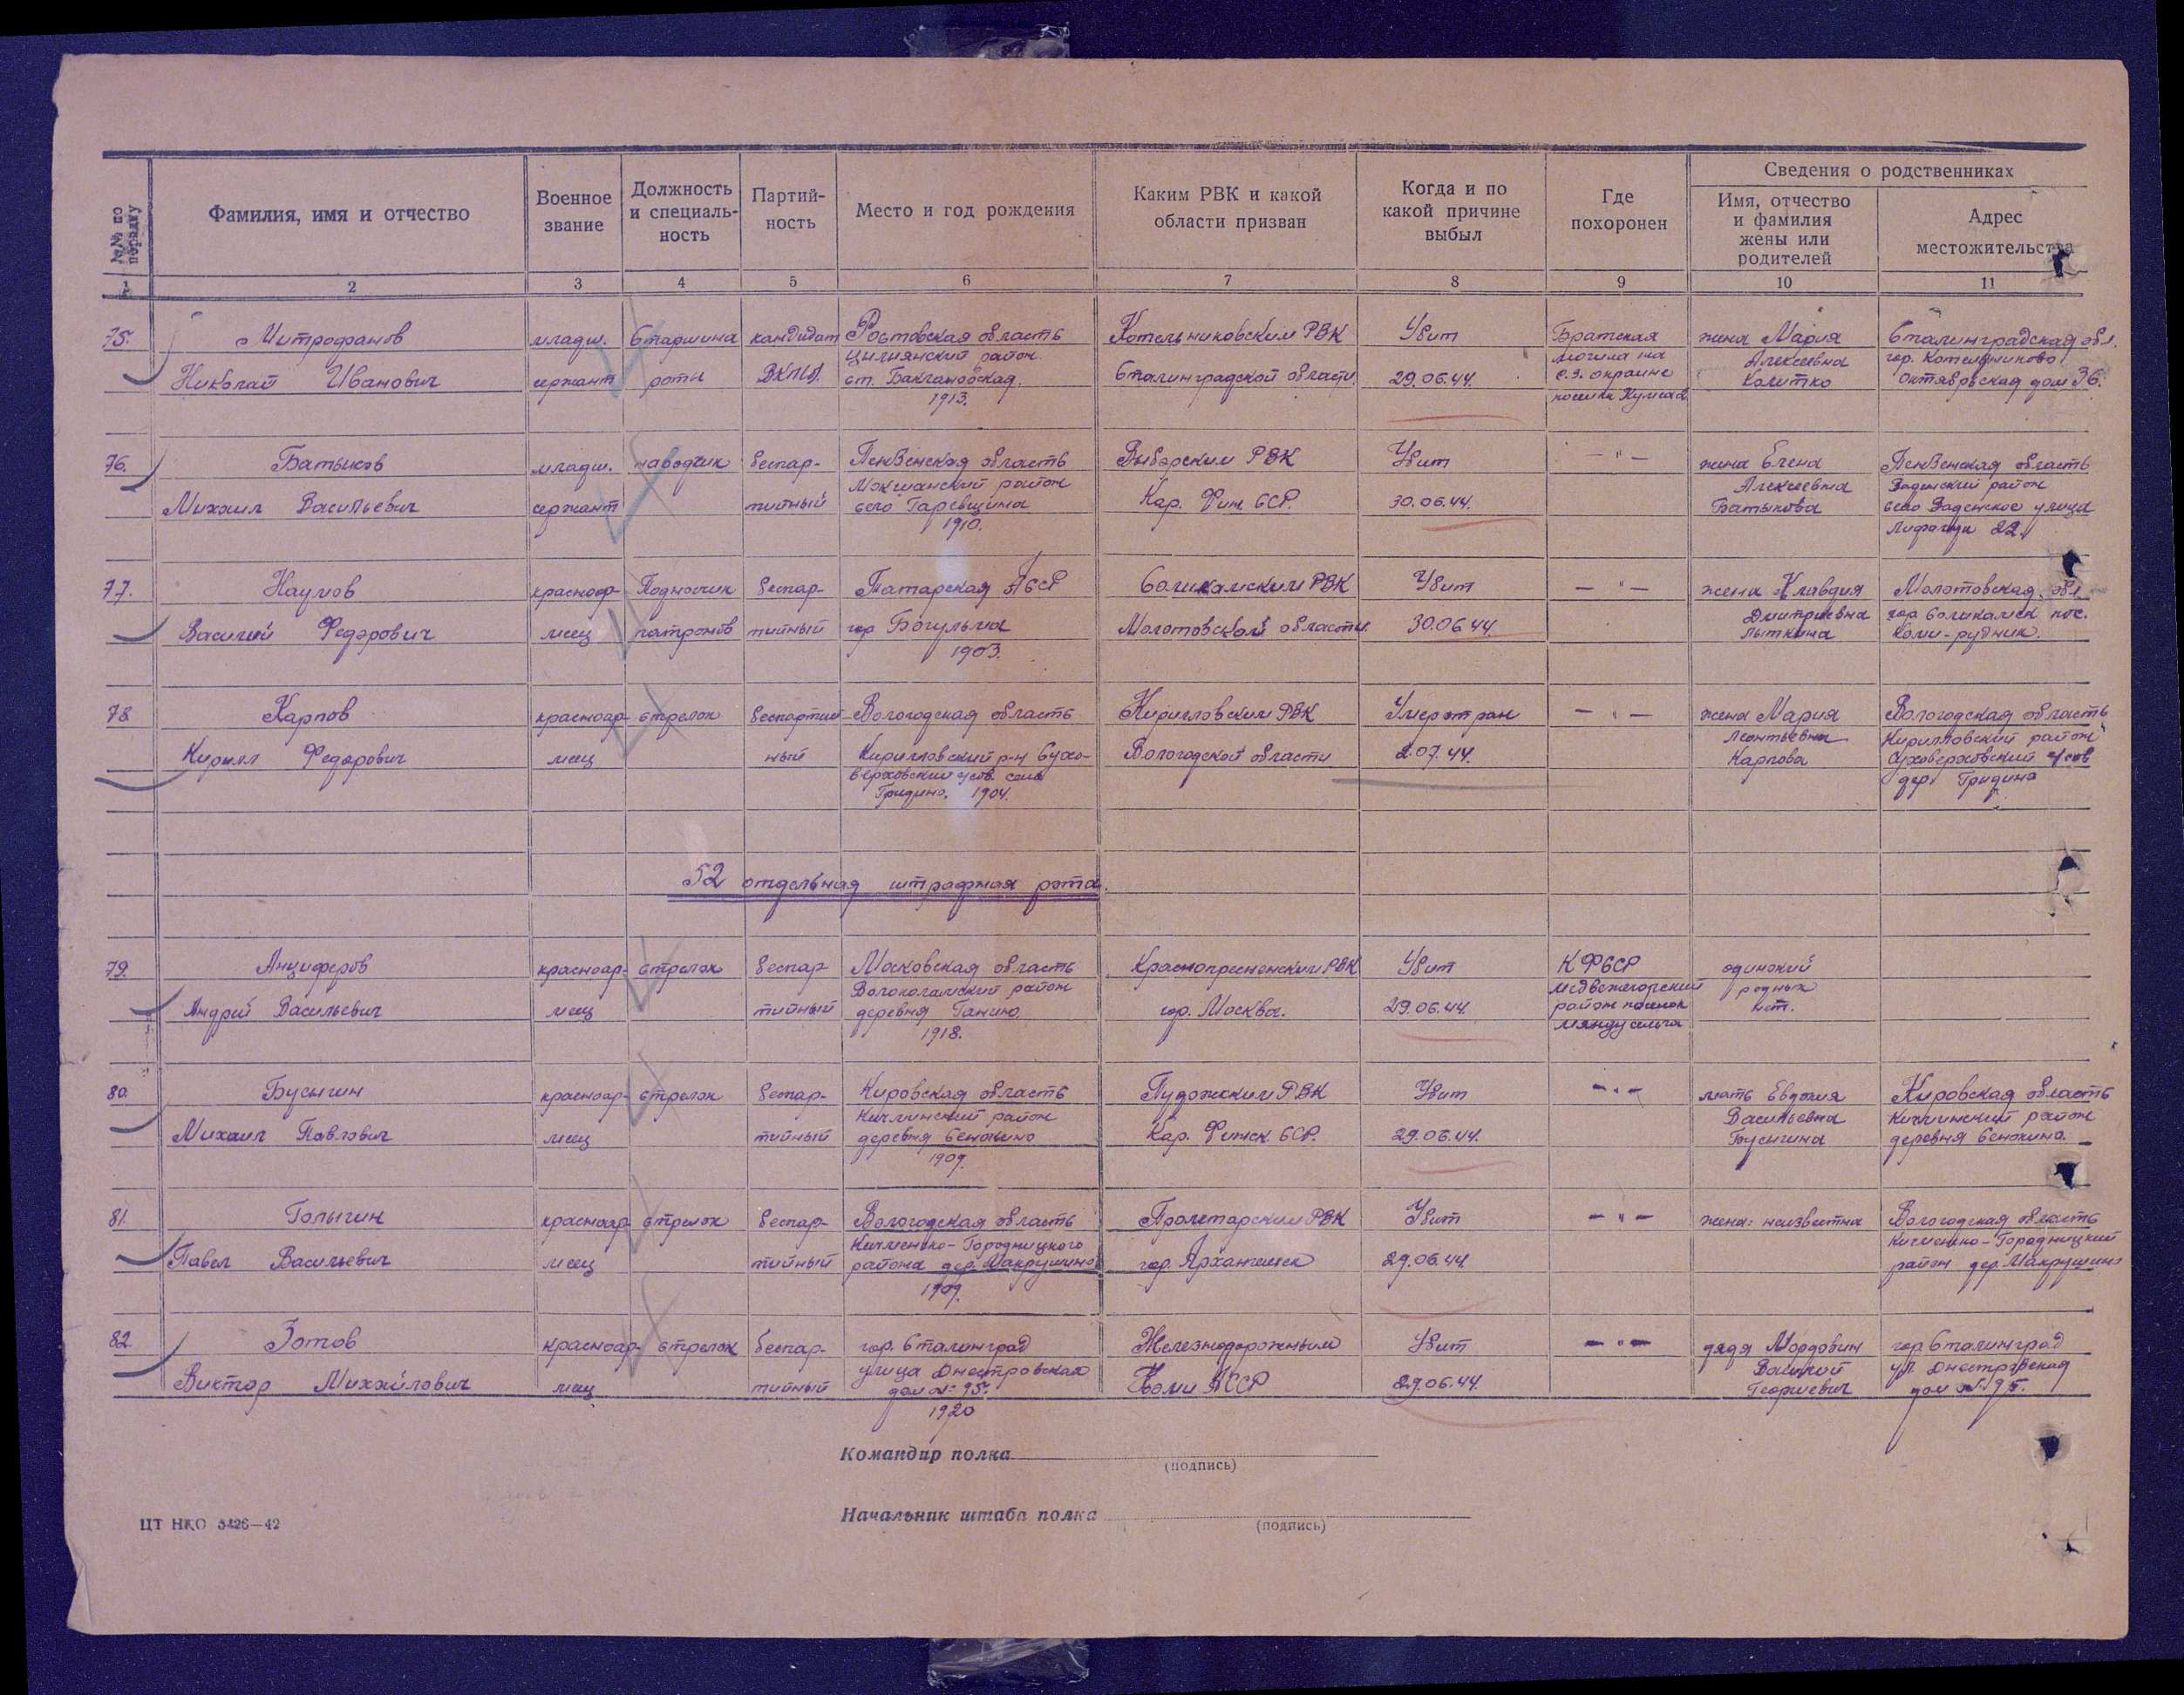 №№ по порядку
Фамилия, имя и отчество
Военное звание
Должность и специальность
Партийность
Место и год рождения
Каким РВК и какой области призван
Когда и по какой причине выбыл
Где похоронен
Сведения о родственниках
Имя, отчество и фамилия жены или родителей
Адрес местожительства
1 2 3 4 5 6 7 8 9 10 11
75. Митрофанов младш. Старшина кандидат Ростовская область Котельниковским РВК Убит Братская жена Мария Сталинградская обл.
Цимлянский район. могила на Алексеевна гор. Котельниково
Николай Иванович сержант роты ВКП(б). ст. Баклановская. Сталинградской области. 29.06.44. с.з. окраине Калитко Октябрьская дом 36.
1913.
76. Батыков младш. наводчик беспар- Пензенская область Выборским РВК Убит —"— жена Елена Пензенская область
Мокшанский район Алексеевна район
Михаил Васильевич сержант тийный село Царевщина Кар. Фин. ССР. 30.06.44. Батыкова село улица
1910. 22.
77. Наумов красноар- Подносчик беспар- Татарская АССР Соликамским РВК Убит —"— жена Клавдия Молотовская обл.
Дмитриевна гор Соликамск пос.
Василий Федорович меец патронов тийный гор Бугульма Молотовской области. 30.06.44. Лыткина Кали-рудник.
1903.
78 Карпов красноар- стрелок беспартий- Вологодская область Кирилловским РВК Умер от ран —"— жена Мария Вологодская область
Леонтьевна Кирилловский район
Кирилл Федорович меец ный Кирилловский р-н Сухо- Вологодской области 2.07.44. Карпова Суховерховский с/сов
верховский с/сов. село дер. Гридино
Гридино. 1904.
52 отдельная штрафная рота.
79. Анциферов красноар- стрелок беспар Московская область Краснопресненским РВК Убит КФССР одинокий
Волоколамский район Медвежегорский родных
Андрей Васильевич меец тийный деревня Ганино гор. Москва. 29.06.44. район поселок нет.
1918. Мяндусельга
80. Бусыгин красноар- стрелок беспар- Кировская область Пудожским РВК Убит —"— мать Евдокия Кировская область
район Васильевна район
Михаил Павлович меец тийный деревня Сенокино Кар. Финск. ССР. 29.06.44. Бусыгина деревня Сенокино.
1909.
81. Голыгин красноар- стрелок беспар- Вологодская область Пролетарским РВК Убит —"— жена: неизвестна Вологодская область
Кичменско-Городницкого Кичменско-Городницкий
Павел Васильевич меец тийный района дер. Макрушино гор. Архангельск 29.06.44. район дер. Макрушино
1909.
82. Зотов красноар- стрелок беспар- гор. Сталинград Железнодорожным Убит —"— дядя Мордовин гор Сталинград
улица Днестровская Василий ул. Днестровская
Виктор Михайлович меец тийный дом № 95. Коми АССР 29.06.44. Георгиевич дом № 95.
1920
Командир полка
(подпись)
Начальник штаба полка
(подпись)
ЦТ НКО 3426—42